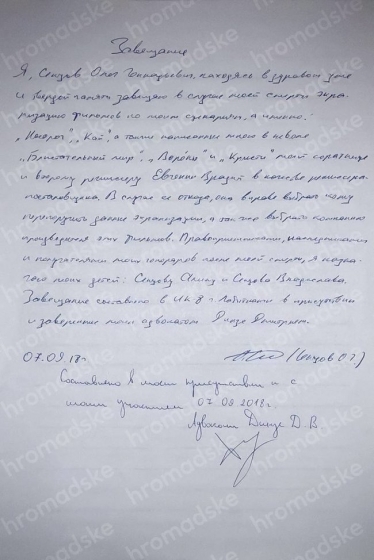 Завещание
Я, Сенцов Олег Геннадьевич, находясь в здравом уме
и твердой памяти завещаю в случае моей смерти экра-
низацию фильмов по моим сценариям, а именно:
"Носорог", "Кай", а также написанные мною в неволе
и второму режиссеру Евгении Врадий в качестве режиссера-
постановщика. В случае её отказа, она вправе выбрать кому
данные экранизации, а также выбрать компанию
этих фильмов.
и получателями моих гонораров после моей смерти, я назна-
чаю моих детей: Сенцову Алину и Сенцова Владислава.
Завещание составлено в ИК-8 г. Лабытнанги в присутствии
и заверенное моим адвокатом Динзе Дмитрием.
07.08.18г. (Сенцов О.Г.)
Составлено в моем присутствии и с
моим участием 07.08.2018г.
Адвокат Динзе Д.В.
hromadske